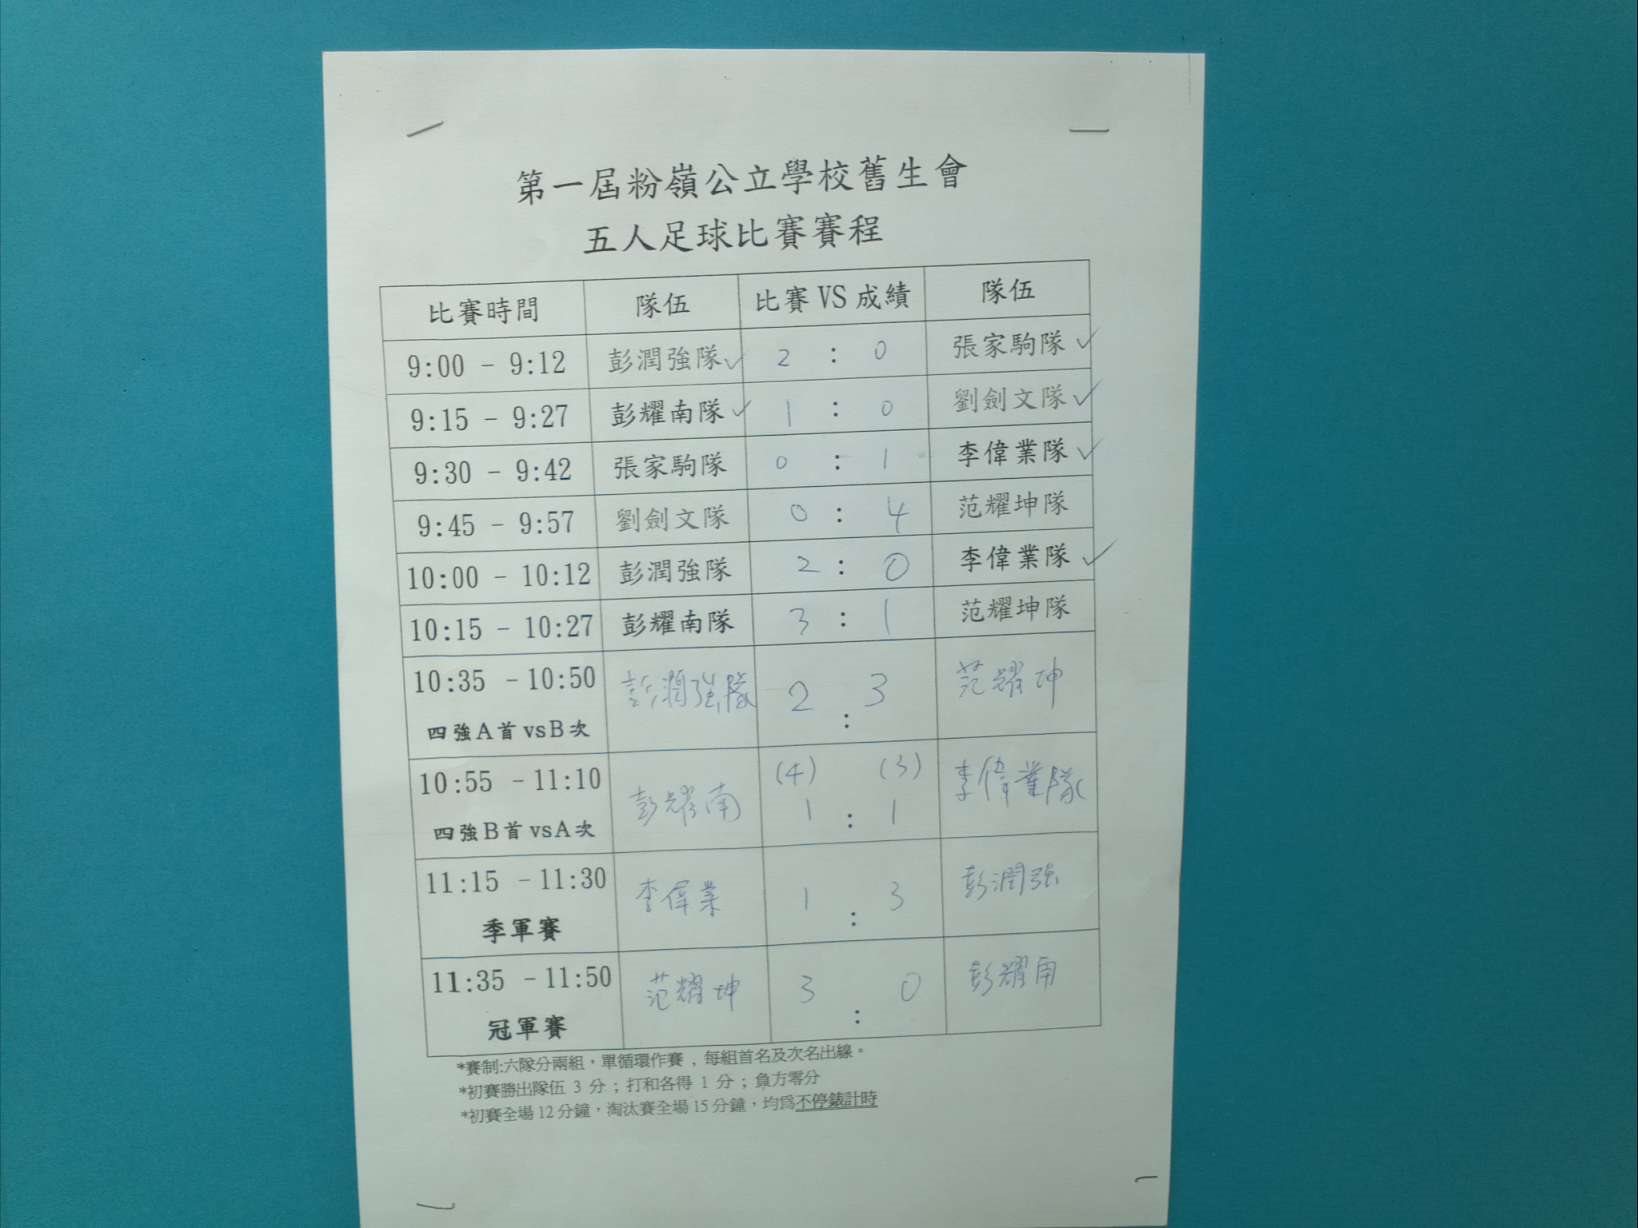 第一屆粉嶺公立學校舊生會
五人足球比賽賽程
比賽時間 隊伍 比賽 VS 成績 隊伍
9:00 - 9:12 彭潤強隊✓ 2 : 0 張家駒隊✓
9:15 - 9:27 彭耀南隊✓ 1 : 0 劉劍文隊✓
9:30 - 9:42 張家駒隊 0 : 1 李偉業隊✓
9:45 - 9:57 劉劍文隊 0 : 4 范耀坤隊
10:00 - 10:12 彭潤強隊 2 : 0 李偉業隊✓
10:15 - 10:27 彭耀南隊 3 : 1 范耀坤隊
10:35 - 10:50 彭潤強隊 2 : 3 范耀坤
四強A首vsB次
(4) (3)
10:55 - 11:10 彭耀南 1 : 1 李偉業隊
四強B首vsA次
11:15 - 11:30 李偉業 1 : 3 彭潤強
季軍賽
11:35 - 11:50 范耀坤 3 : 0 彭耀南
冠軍賽
*賽制:六隊分兩組，單循環作賽，每組首名及次名出線。
*初賽勝出隊伍 3 分；打和各得 1 分；負方零分
*初賽全場12分鐘，淘汰賽全場15分鐘，均爲不停錶計時